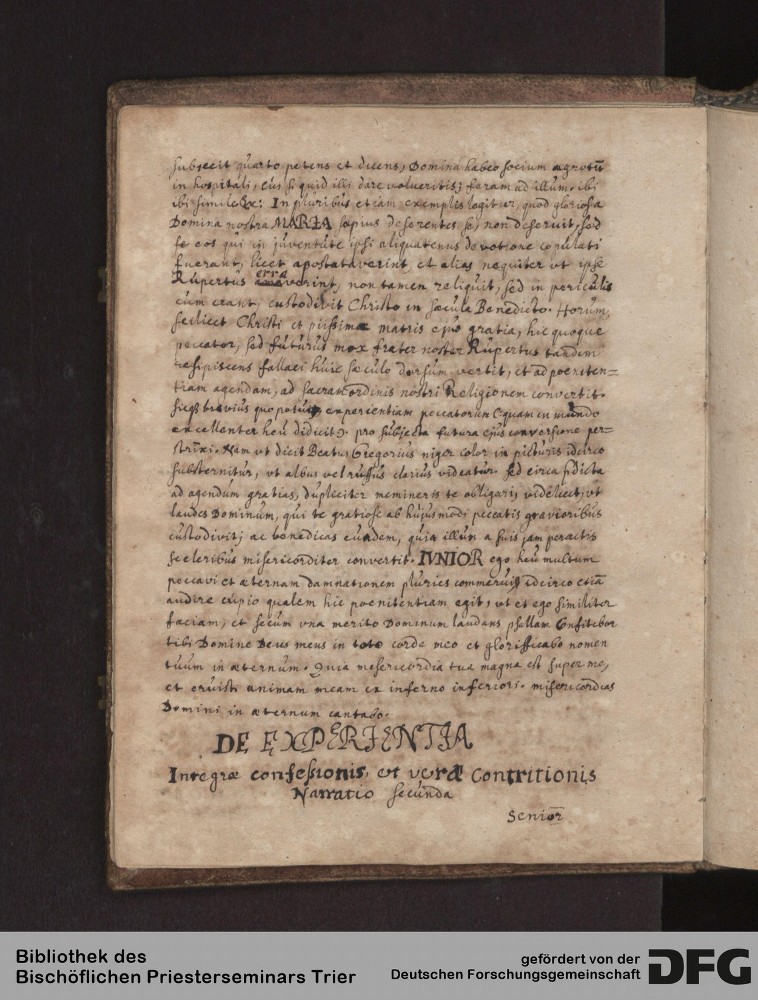 subjecit quarto petens et dicens, Domina habeo socium ægrotū
in hospitali, cui si quid illi dare volueritis; feram ad illum. ibi
ibi simile &c: In pluribus etiam exemplis legitur, quod gloriosa
Domina nostra MARIA sæpius deserentes se, non deseruit, sed
se eos qui in juventute ipsi aliquatenus devotione copulati
fuerant, licet apostataverint, et alias nequiter ut ipse
Rupertus erraverint, non tamen reliquit, sed in periculis
cum erant, custodivit Christo in sæcula Benedicto. Horum,
scilicet Christi et piissimæ matris ejus gratia, hic quoque
peccator, sed futurus mox frater noster Rupertus tandem
resipiscens fallaci huic sæculo dorsum vertit, et ad poeniten=
tiam agendam, ad sacram ordinis nostri Religionem convertit.
sicq; brevius quo potui, experientiam peccatorum quam in mundo
excellenter heu didicit, pro subjecta futura ejus conversione per=
strinxi. Nam ut dicit Beatus Gregorius niger color in picturis idcirco
substernitur, ut albus vel ruffus clarius videatur. sed circa prædicta
ad agendum gratias, dupliciter memineris te obligari, videlicet, ut
laudes Dominum, qui te gratiose ab hujusmodi peccatis gravioribus
custodivit; ac benedicas eundem, quia illum a suis jam peractis
sceleribus misericorditer convertit. IVNIOR ego heu multum
peccavi et æternam damnationem pluries commerui, idcirco etiā
audire cupio qualem hic poenitentiam egit, ut et ego similiter
faciam, et secum una merito Dominum laudans psallam Confitebor
tibi Domine Deus meus in toto corde meo et glorificabo nomen
tuum in æternum. Quia misericordia tua magna est super me,
et eruisti animam meam ex inferno inferiori. misericordias
Domini in æternum cantabo.
DE EXPERIENTIA
Integræ confessionis, et veræ Contritionis
Narratio secunda
Senior
Bibliothek des
Bischöflichen Priesterseminars Trier
gefördert von der
Deutschen Forschungsgemeinschaft
DFG